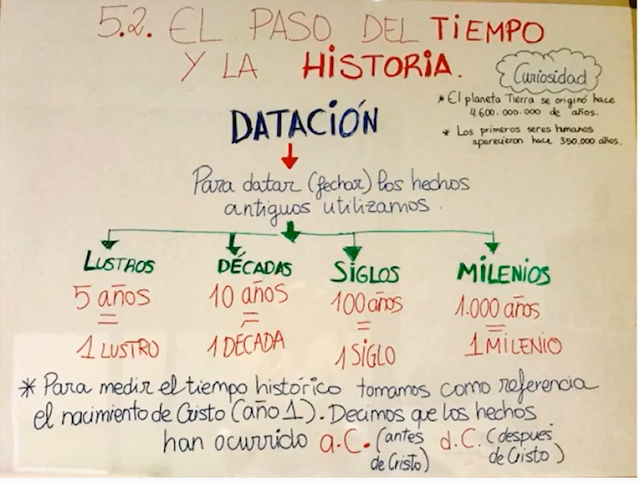 5.2. EL PASO DEL TIEMPO
Y LA HISTORIA.
Curiosidad
* El planeta Tierra se originó hace
4.600.000.000 de años.
* Los primeros seres humanos
aparecieron hace 350.000 años.
DATACIÓN
Para datar (fechar) los hechos
antiguos utilizamos.
LUSTROS DÉCADAS SIGLOS MILENIOS
5 años 10 años 100 años 1.000 años
= = = =
1 LUSTRO 1 DÉCADA 1 SIGLO 1 MILENIO
* Para medir el tiempo histórico tomamos como referencia
el nacimiento de Cristo (año 1). Decimos que los hechos
han ocurrido a.C. (antes de Cristo) d.C. (después de Cristo)